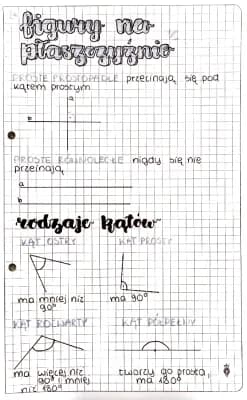 figury na
płaszczyźnie
PROSTE PROSTOPADŁE przecinają się pod
kątem prostym
a
b
PROSTE RÓWNOLEGŁE nigdy się nie
przeinają
a
b
rodzaje kątów
KĄT OSTRY KĄT PROSTY
ma mniej niż
90°
ma 90°
KĄT ROZWARTY KĄT PÓŁPEŁNY
ma więcej niż
90° i mniej
niż 180°
tworzy go prosta,
ma 180°